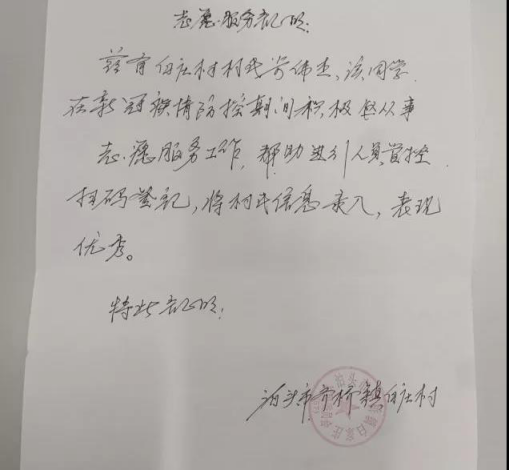 志愿服务证明:
兹有白庄村村民齐伟杰,该同学
在新冠疫情防控期间积极从事
志愿服务工作,帮助进行人员管控
扫码登记,将村民信息录入,表现
优秀。
特此证明:
泊头市齐桥镇白庄村